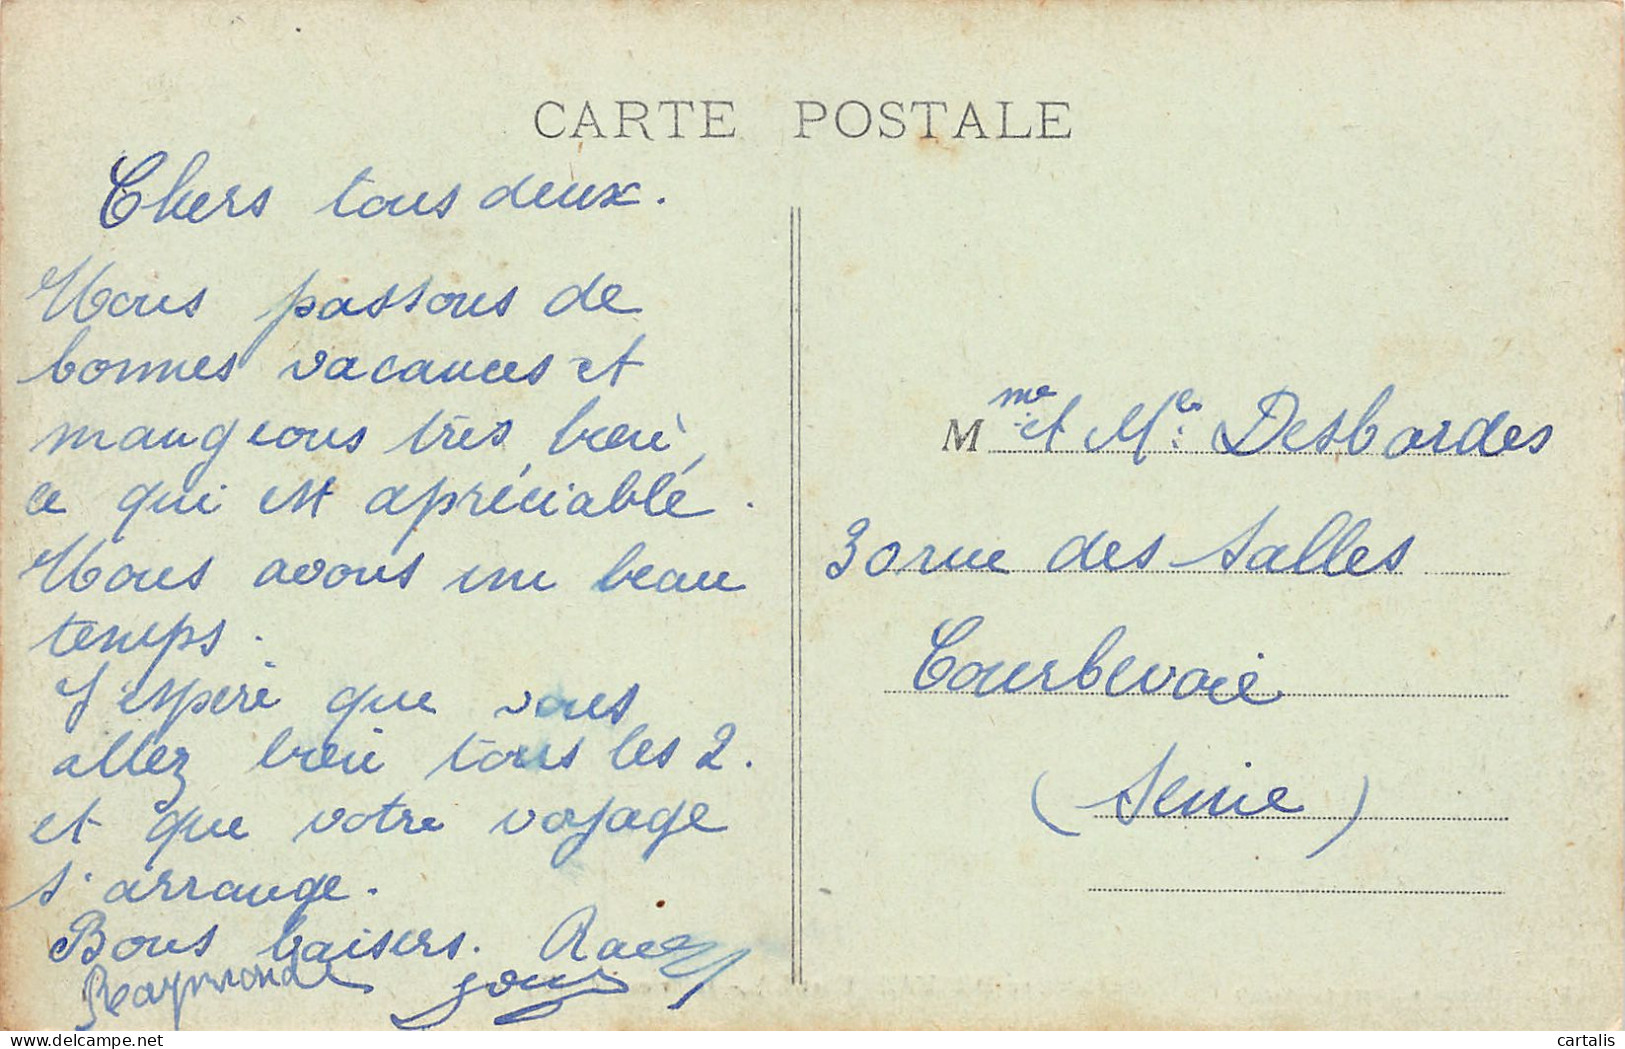 CARTE POSTALE
Chers tous deux.
Nous passons de
bonnes vacances et
mangeons très bien,
ce qui est apréciable.
Nous avons un beau
temps.
J'espère que vous
allez bien tous les 2.
et que votre voyage
s'arrange.
Bons baisers.
Raymonde
M me et Mr Desbordes
30 rue des Salles
Courbevoie
(Seine)
delcampe.net
cartalis